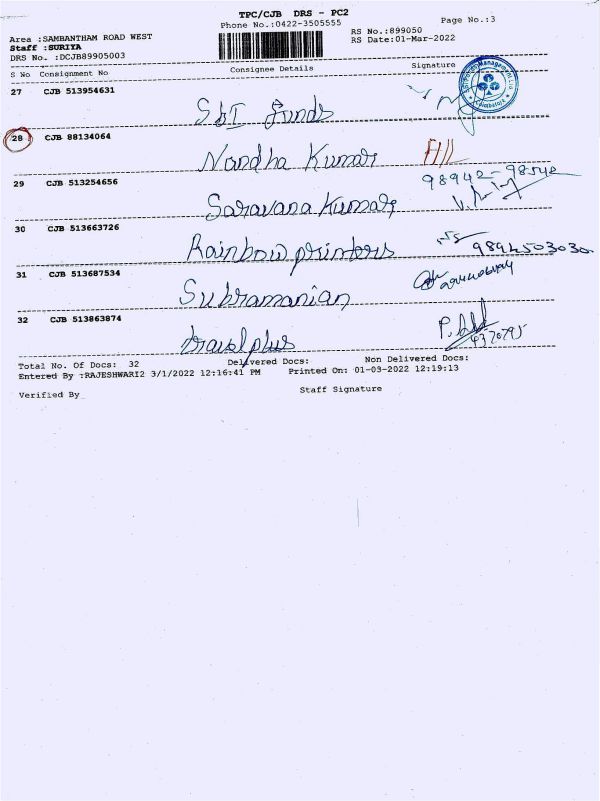 TPC/CJB DRS - PC2
Phone No.:0422-3505555
Page No.:3
Area :SAMBANTHAM ROAD WEST
RS No.:899050
Staff :SURIYA
RS Date:01-Mar-2022
DRS No. :DCJB89905003
S No Consignment No Consignee Details Signature
27 CJB 513954631
SbI funds
28 CJB 88134064
Nandha Kumar
29 CJB 513254656
98942-98542
Saravana Kumar
30 CJB 513663726
Rainbow printers 9894503030
31 CJB 513687534
Subramanian
32 CJB 513863874
travel plus
Total No. Of Docs: 32 Delivered Docs: Non Delivered Docs:
Entered By :RAJESHWARI2 3/1/2022 12:16:41 PM Printed On: 01-03-2022 12:19:13
Verified By
Staff Signature